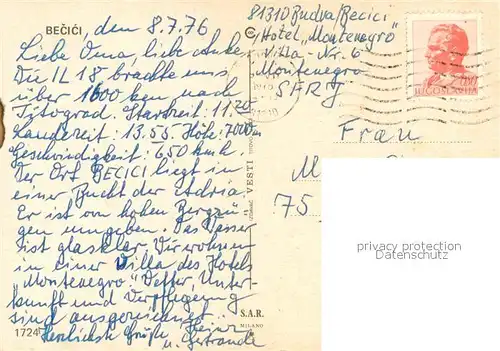 BEČIĆI, den 8.7.76
Liebe Oma, liebe Anke.
Die IL 18 brachte uns
über 1600 km nach
Titograd. Startzeit: 11.20
Landezeit: 13.55 Höhe: 7000 m
Geschwindigkeit: 650 km/h.
Der Ort BECICI liegt in
einer Bucht der Adria.
Er ist von hohen Bergzü-
gen umgeben. Das Wasser
ist glasklar. Wir wohnen
in einer Villa des Hotels
"Montenegro". Wetter, Unter-
kunft und Verpflegung
sind ausgezeichnet.
Herzlichste Grüße Heinz
u. Gertraude
1724
VESTI
S.A.R.
MILANO
81310 Budva/Becici
Hotel "Montenegro"
Villa - Nr. 6
Montenegro
SFRJ
JUGOSLAVIJA
Frau
M
75
privacy protection
Datenschutz